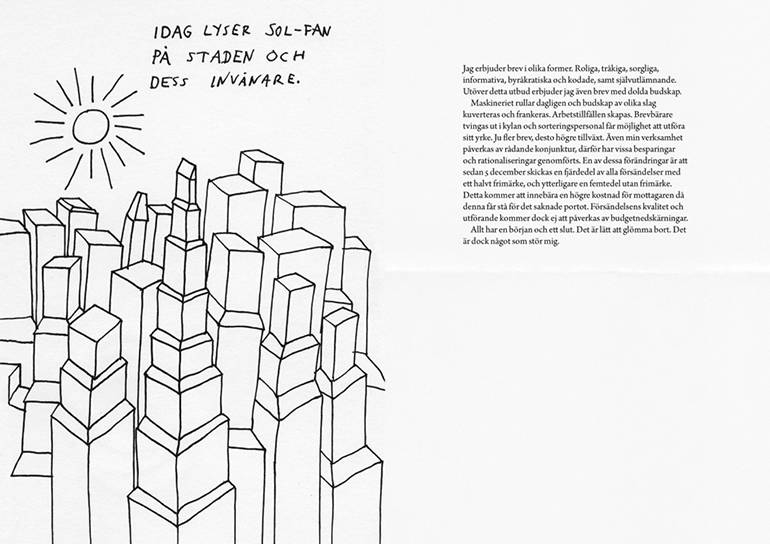 IDAG LYSER SOL-FAN
PÅ STADEN OCH
DESS INVÅNARE.
Jag erbjuder brev i olika former. Roliga, tråkiga, sorgliga,
informativa, byråkratiska och kodade, samt självutlämnande.
Utöver detta utbud erbjuder jag även brev med dolda budskap.
Maskineriet rullar dagligen och budskap av olika slag
kuverteras och frankeras. Arbetstillfällen skapas. Brevbärare
tvingas ut i kylan och sorteringspersonal får möjlighet att utföra
sitt yrke. Ju fler brev, desto högre tillväxt. Även min verksamhet
påverkas av rådande konjunktur, därför har vissa besparingar
och rationaliseringar genomförts. En av dessa förändringar är att
sedan 5 december skickas en fjärdedel av alla försändelser med
ett halvt frimärke, och ytterligare en femtedel utan frimärke.
Detta kommer att innebära en högre kostnad för mottagaren då
denna får stå för det saknade portot. Försändelsens kvalitet och
utförande kommer dock ej att påverkas av budgetnedskärningar.
Allt har en början och ett slut. Det är lätt att glömma bort. Det
är dock något som stör mig.